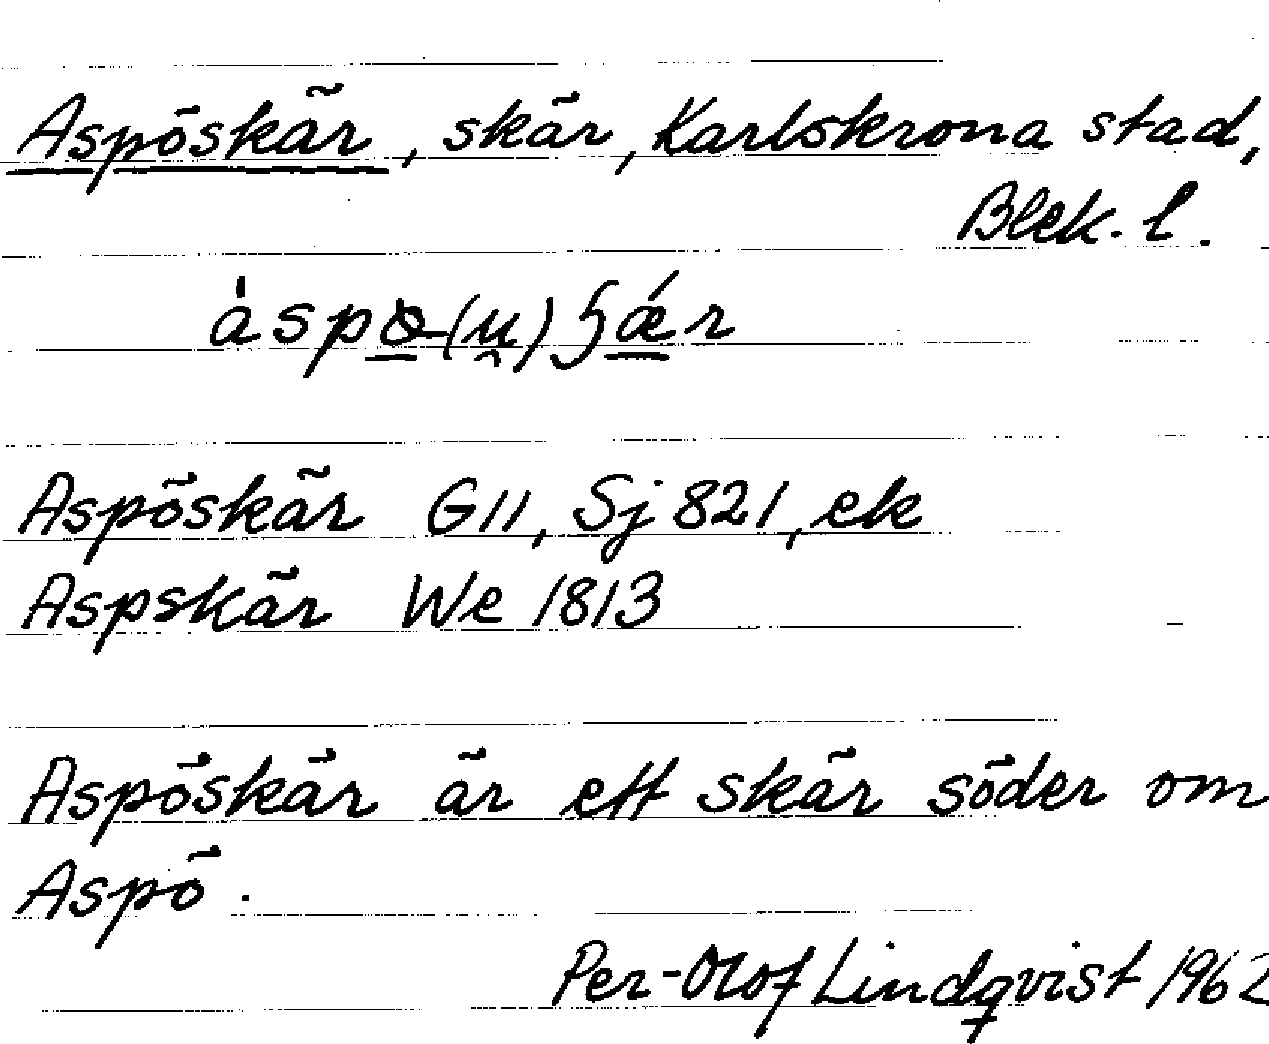 Aspöskär, skär, Karlskrona stad,
Blek. l.
Aspöskär G11, Sj 821, ek
Aspskär We 1813
Aspöskär är ett skär söder om
Aspö.
Per-Olof Lindqvist 1962